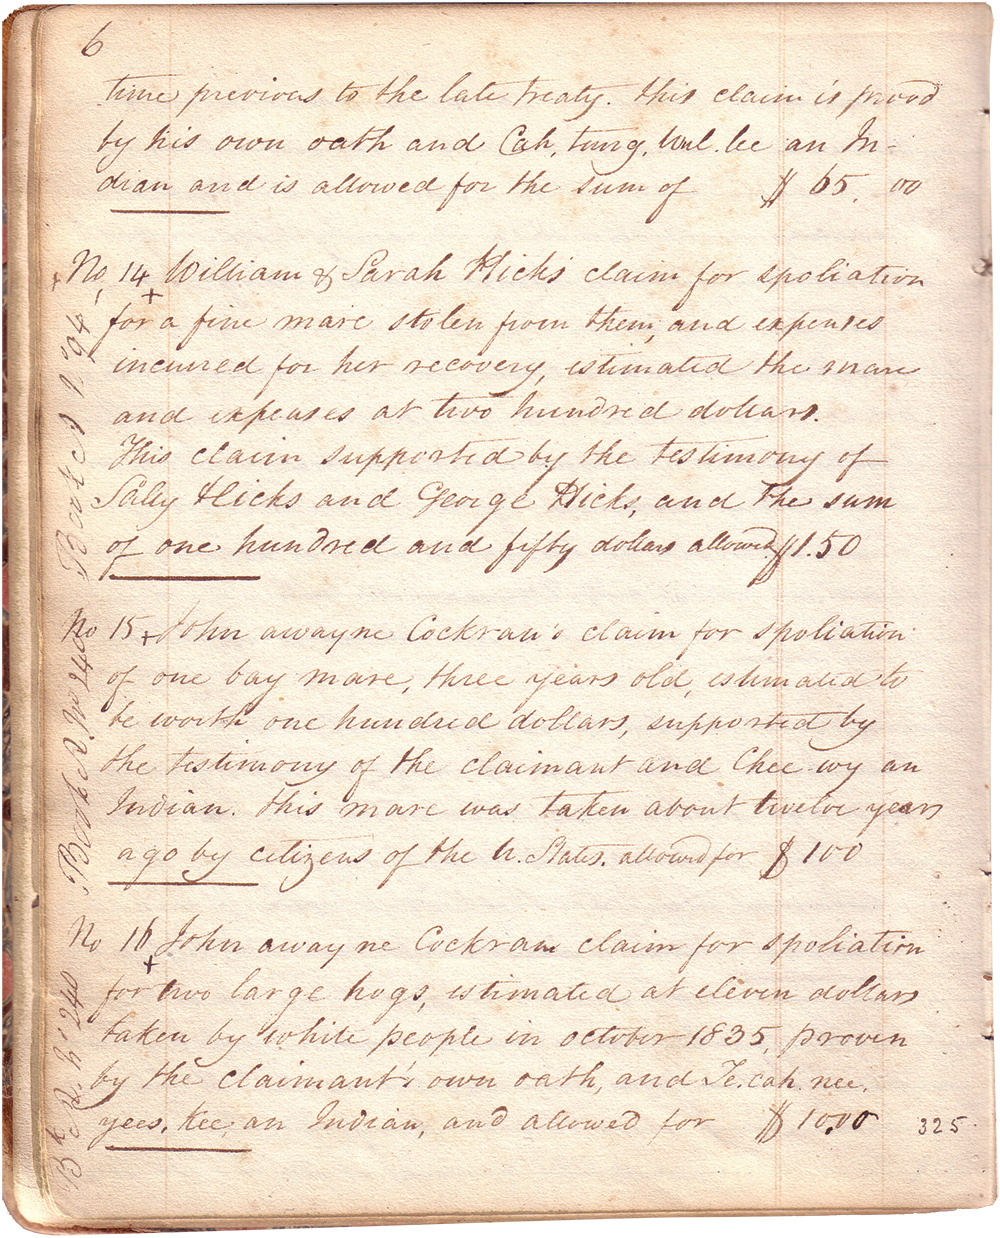 6
time previous to the late treaty. this claim is proved
by his own oath and Cah, tung, wul. lee an In-
dian and is allowed for the sum of $ 65. 00
No, 14 + William & Sarah Hicks' claim for spoliation
for a fine mare stolen from them, and expenses
incurred for her recovery, estimated the mare
and expenses at two hundred dollars.
This claim supported by the testimony of
Sally Hicks and George Hicks, and The sum
of one hundred and fifty dollars allowed $1.50
No 15 + John awayne Cockran's claim for spoliation
of one bay mare, three years old, estimated to
be worth one hundred dollars, supported by
the testimony of the claimant and Chee-wy an
Indian. this mare was taken about twelve years
ago by citizens of the U. States. allowed for $ 100
No 16 + John awayne Cockram claim for spoliation
for two large hogs, estimated at eleven dollars
taken by white people in october 1835, proven
by the claimant's own oath, and Te. cah. nee.
yees. kee, an Indian, and allowed for $ 10.00
325